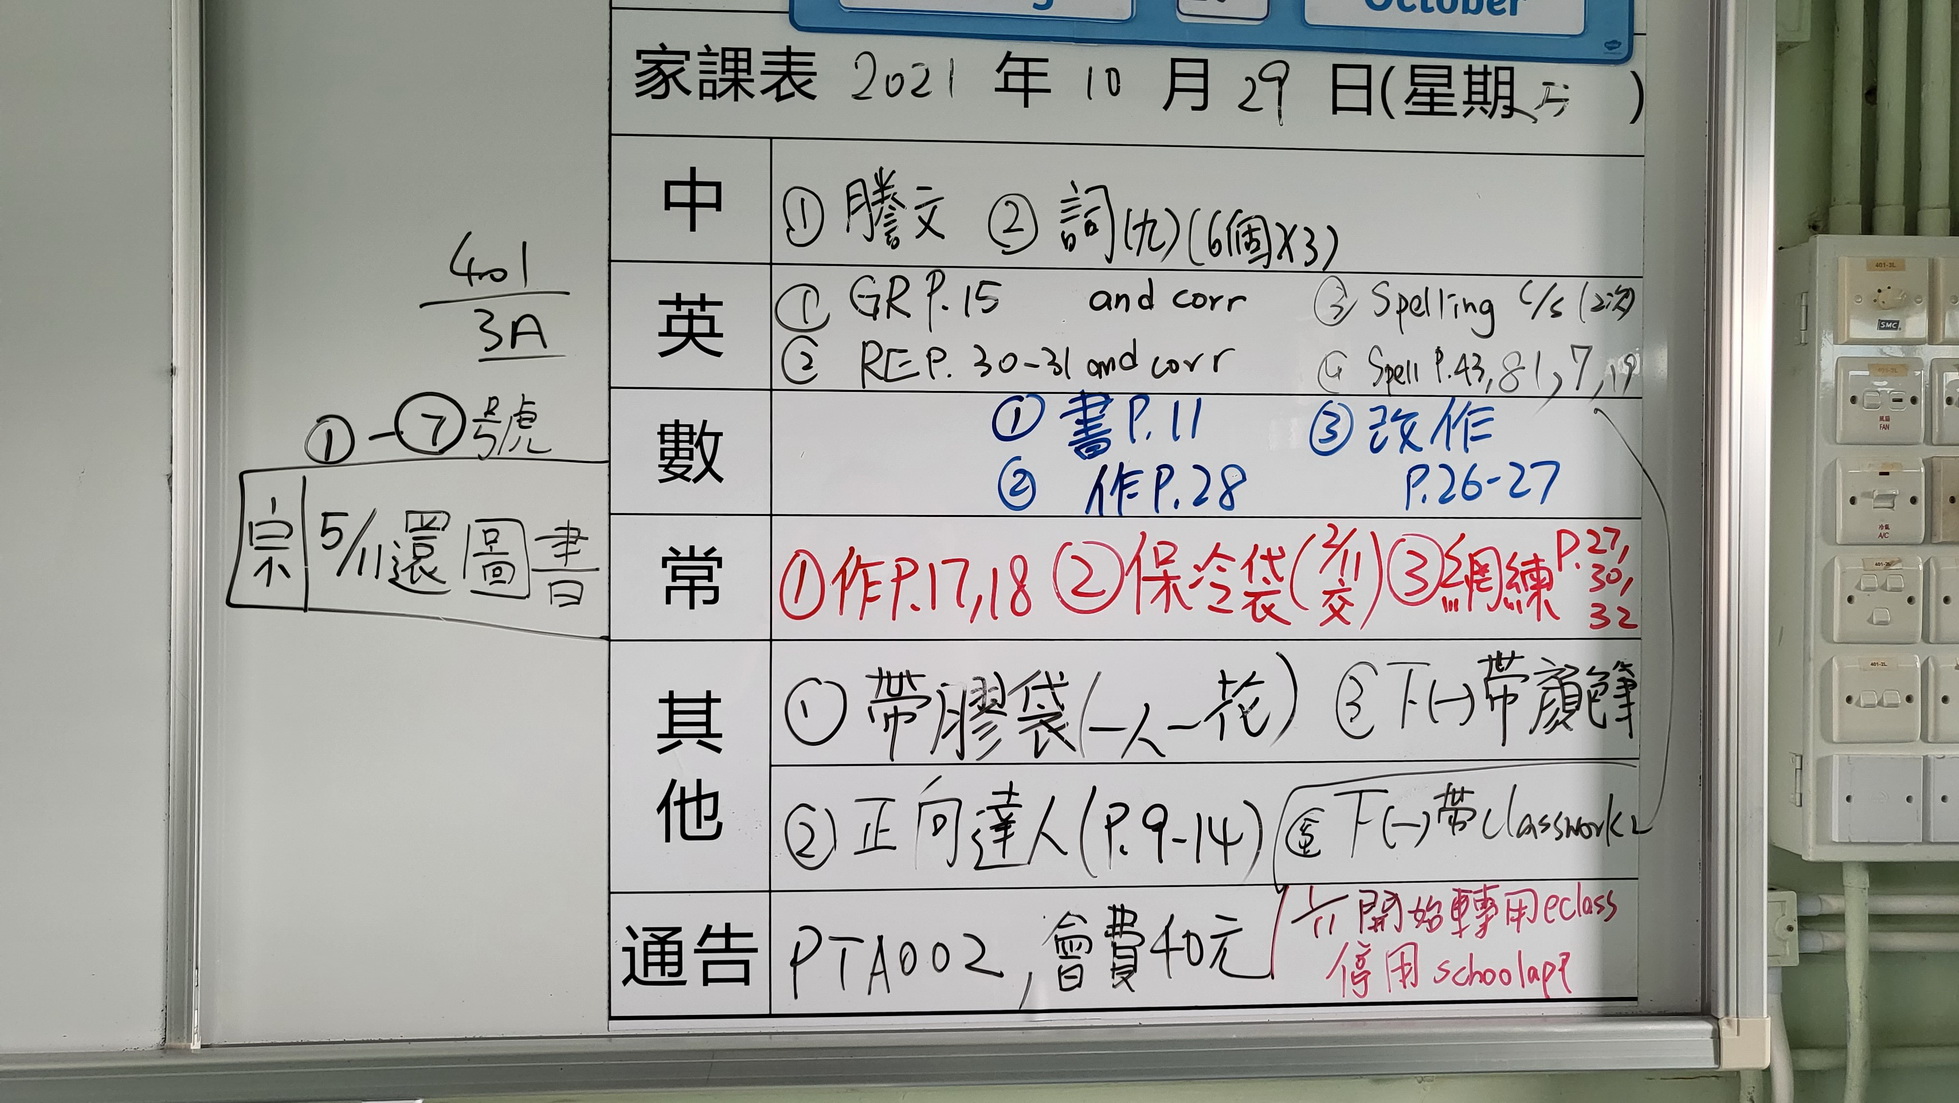 October
家課表 2021 年 10 月 29 日(星期五)
中
① 謄文 ② 詞(九)(6個X3)
英
① GR P.15 and corr ③ Spelling C/S (2次)
② RE P. 30-31 and corr ④ Spell P.43, 81, 7, 19
數
① 書P.11 ③ 改作
② 作P.28 P.26-27
常
①作P.17,18 ②保冷袋(2/11交) ③網練P.27, 30, 32
其他
① 帶膠袋(一人一花) ③ 下(一)帶顏色筆
② 正向達人(P.9-14) 下(一)帶classwork
通告
PTA002, 會費40元
開始轉用eclass
停用schoolapp
401
3A
①-⑦號
5/11還圖書
401-2L
SMC
401-2L
風扇
FAN
冷氣
A/C
401-2L
401-2L